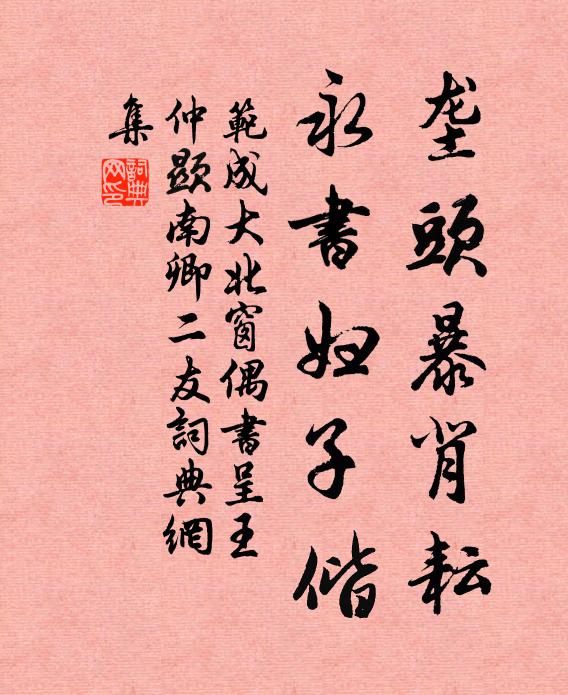 垄頭暴背耘
永書妇子偕
範成大北窗偶書呈王
仲顯南卿二友詞典網
集
詞典网印